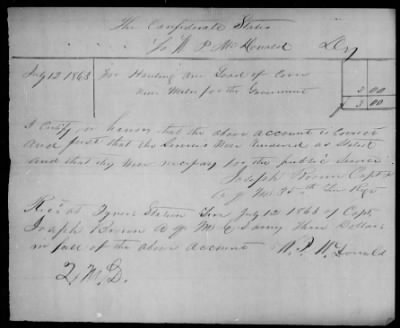 The Confederate States
To W P McDonald Dr
July 12 1863 For Hauling one Load of Corn
nine Miles for the Government 3 00
3 00
I Certify on honor that the above account is correct
and just that the Services were rendered as stated
and that they were necessary for the public service
Joseph Brown Capt &
a q m 35th Tenn Regt
Rec'd at Tyners Station Tenn July 12 1863 of Capt
Joseph Brown a q m C S army Three Dollars
in full of the above account W. P. McDonald